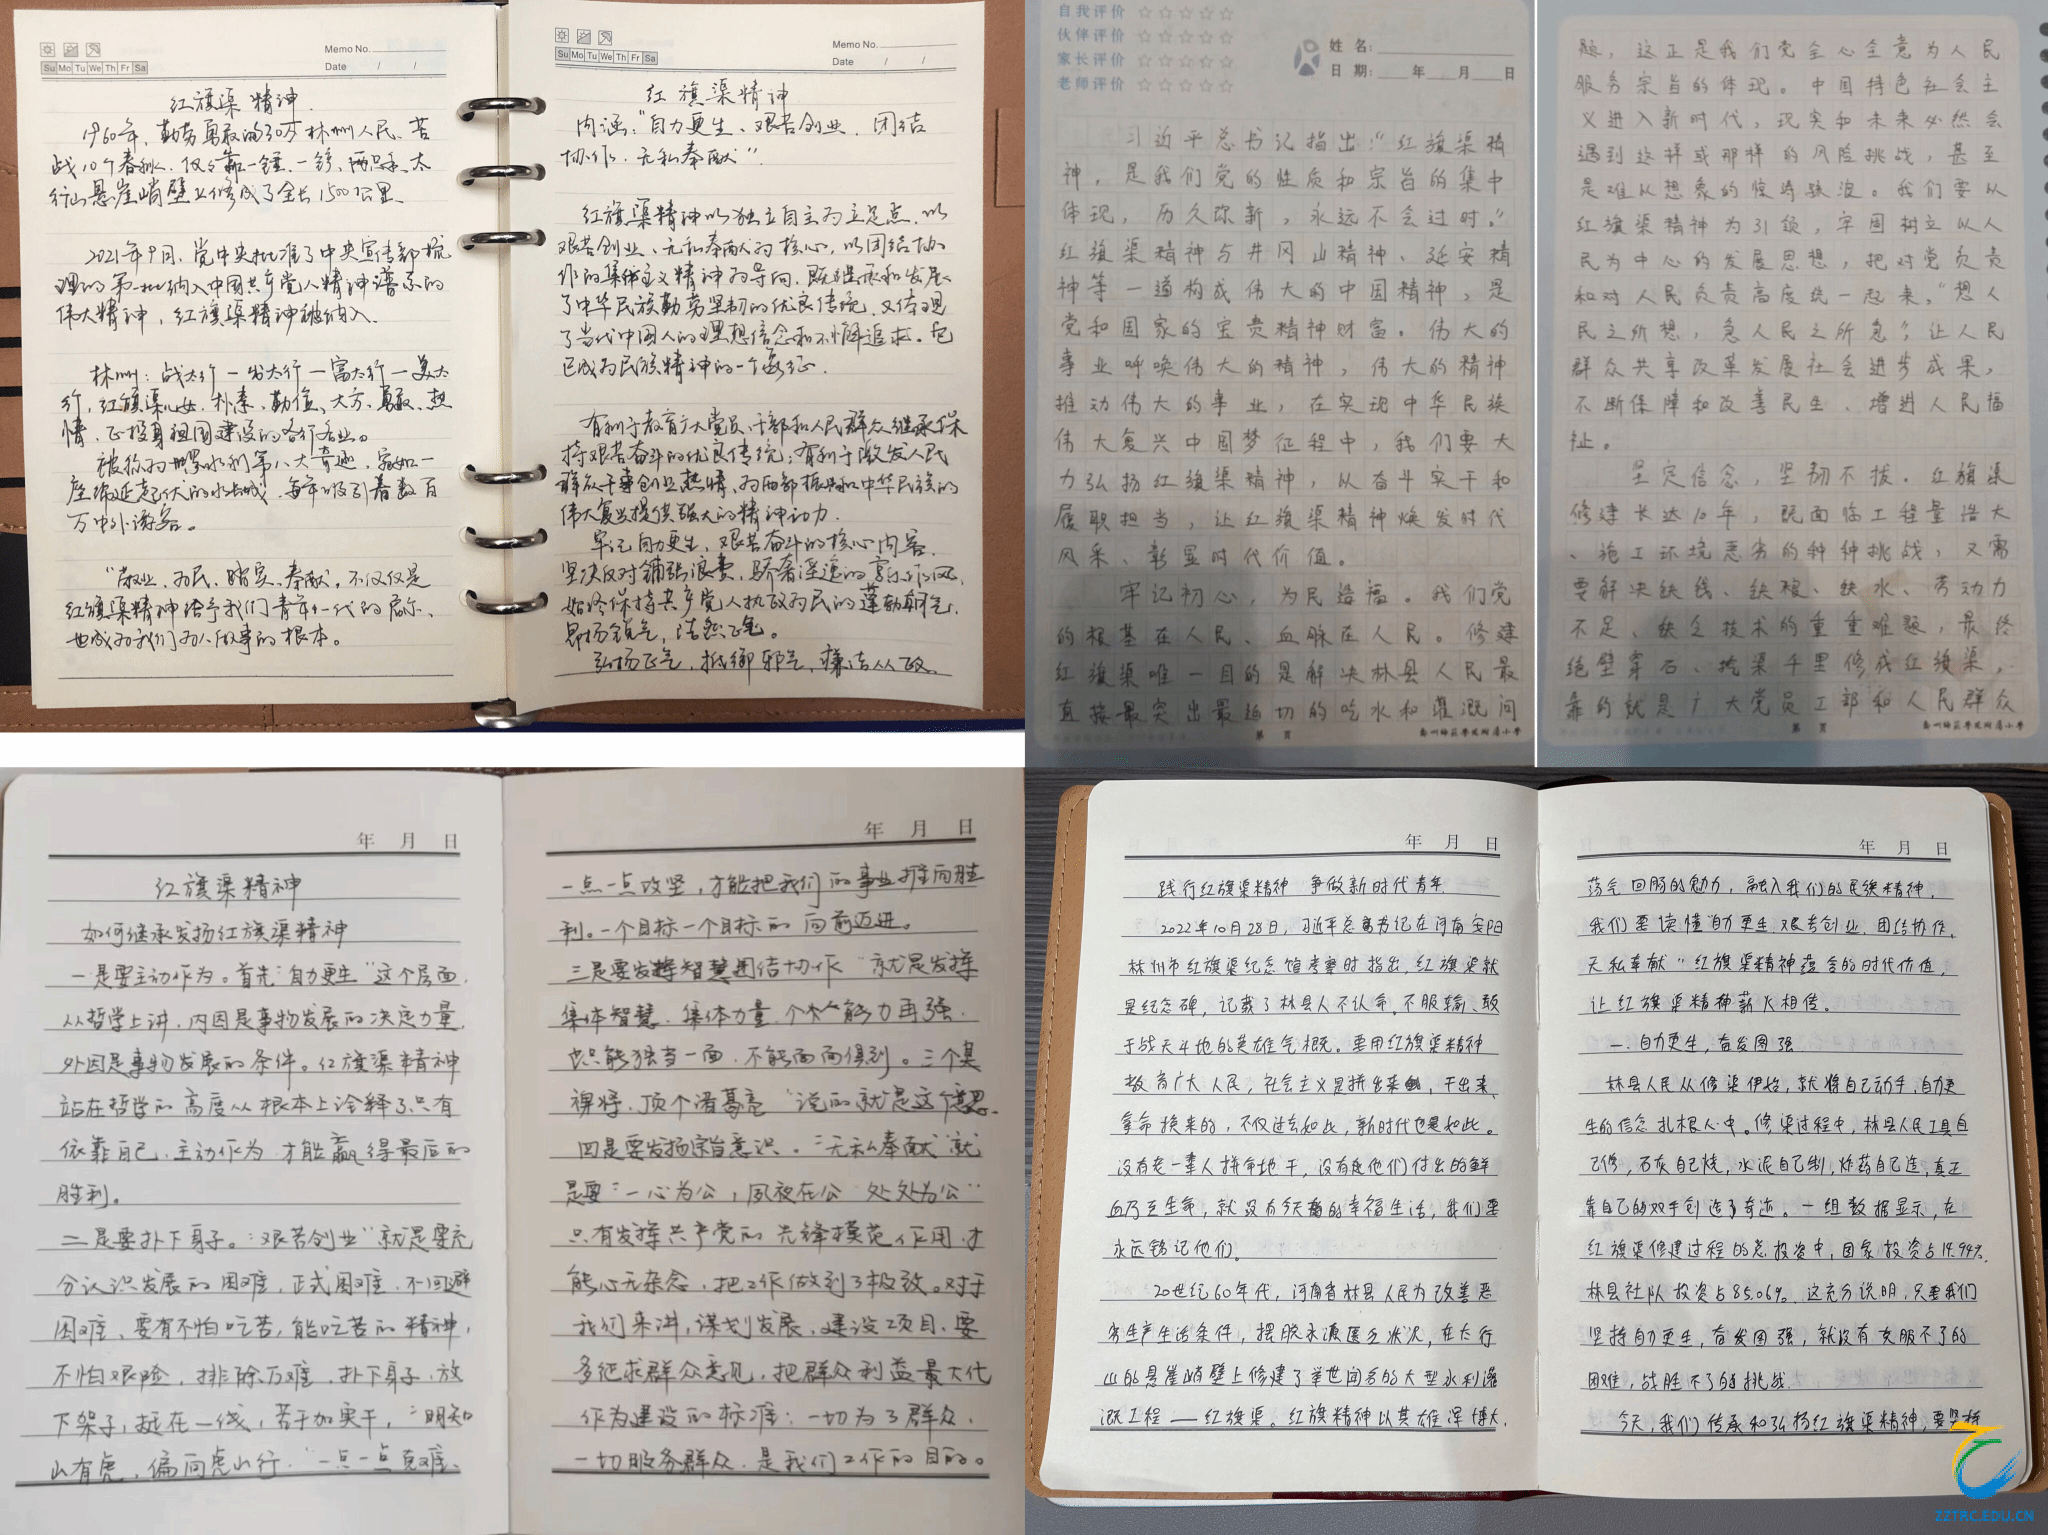 Memo No.
Date / /
Su Mo Tu We Th Fr Sa
红旗渠精神.
1960年,勤劳勇敢的30万林州人民,苦
战10个春秋,仅仅靠一锤、一铲、两只手,太
行山悬崖峭壁上修成了全长1500公里.
2021年9月,党中央批准了中央宣传部梳
理的第一批纳入中国共产党人精神谱系的
伟大精神,红旗渠精神被纳入.
林州:战太行—出太行—富太行—美太
行,红旗渠儿女,朴素、勤俭、大方、勇敢、热
情,正投身祖国建设的各行各业。
被称为世界水利第八大奇迹,宛如一
座绵延起伏的水长城,每年吸引着数百
万中外游客。
"敬业、为民、踏实、奉献,不仅仅是
红旗渠精神给予我们青年一代的启示、
也成为我们为人做事的根本。
Memo No.
Date / /
Su Mo Tu We Th Fr Sa
红旗渠精神
内涵:"自力更生、艰苦创业、团结
协作、无私奉献".
红旗渠精神以独立自主为立足点,以
艰苦创业、无私奉献为核心,以团结协
作的集体主义精神为导向,既继承和发展
了中华民族勤劳坚韧的优良传统,又体现
了当代中国人的理想信念和不懈追求。它
已成为民族精神的一个象征.
有利于教育广大党员、干部和人民群众继承保
持艰苦奋斗的优良传统;有利于激发人民
群众干事创业热情,为西部振兴和中华民族的
伟大复兴提供强大的精神动力.
牢记自力更生,艰苦奋斗的核心内容,
坚决反对铺张浪费,骄奢淫逸的享乐作风,
始终保持共产党人执政为民的蓬勃朝气,
昂扬锐气,浩然正气。
弘扬正气,抵御邪气,廉洁从政.
自我评价 ☆☆☆☆☆
伙伴评价 ☆☆☆☆☆
家长评价 ☆☆☆☆☆
老师评价 ☆☆☆☆☆
姓 名:
日 期: 年 月 日
习近平总书记指出:"红旗渠精
神,是我们党的性质和宗旨的集中
体现,历久弥新,永远不会过时。"
红旗渠精神与井冈山精神、延安精
神等一道构成伟大的中国精神,是
党和国家的宝贵精神财富。伟大的
事业呼唤伟大的精神,伟大的精神
推动伟大的事业,在实现中华民族
伟大复兴中国梦征程中,我们要大
力弘扬红旗渠精神,从奋斗实干和
履职担当,让红旗渠精神焕发时代
风采、彰显时代价值。
牢记初心,为民造福。我们党
的根基在人民、血脉在人民。修建
红旗渠唯一目的是解决林县人民最
直接最突出最迫切的吃水和灌溉问
第 页
题,这正是我们党全心全意为人民
服务宗旨的体现。中国特色社会主
义进入新时代,现实和未来必然会
遇到这样或那样的风险挑战,甚至
是难以想象的惊涛骇浪。我们要以
红旗渠精神为引领,牢固树立以人
民为中心的发展思想,把对党负责
和对人民负责高度统一起来,"想人
民之所想,急人民之所急",让人民
群众共享改革发展社会进步成果,
不断保障和改善民生、增进人民福
祉。
坚定信念,坚韧不拔。红旗渠
修建长达10年,既面临工程量浩大
、施工环境恶劣的种种挑战,又需
要解决缺钱、缺粮、缺水、劳动力
不足、缺乏技术的重重难题,最终
绝壁穿石、挖渠千里修成红旗渠,
靠的就是广大党员工部和人民群众
第 页
年 月 日
红旗渠精神
如何继承发扬红旗渠精神
一是要主动作为。首先"自力更生"这个层面,
从哲学上讲,内因是事物发展的决定力量,
外因是事物发展的条件。红旗渠精神
站在哲学的高度从根本上诠释了只有
依靠自己,主动作为,才能赢得最后的
胜利。
二是要扑下身子。"艰苦创业"就是要充
分认识发展的困难,正式困难,不回避
困难,要有不怕吃苦,能吃苦的精神,
不怕艰险,排除万难,扑下身子,放
下架子,挺在一线,苦干加实干,"明知
山有虎,偏向虎山行."一点一点克难、
年 月 日
一点一点攻坚,才能把我们的事业推向胜
利。一个目标一个目标的向前迈进。
三是要发挥智慧团结协作"就是发挥
集体智慧,集体力量,个人能力再强,
也只能独当一面,不能面面俱到。三个臭
裨将,顶个诸葛亮"说的就是这个意思.
四是要发扬宗旨意识。"无私奉献"就
是要"一心为公,夙夜在公 处处为公"
只有发挥共产党的先锋模范作用,才
能心无杂念,把工作做到了极致。对于
我们来讲,谋划发展,建设项目,要
多征求群众意见,把群众利益最大化
作为建设的标准;一切为了群众,
一切服务群众,是我们工作的目的。
年 月 日
践行红旗渠精神 争做新时代青年
2022年10月28日,习近平总书记在河南安阳
林州市红旗渠纪念馆考察时指出,红旗渠就
是纪念碑,记载了林县人不认命,不服输、敢
于战天斗地的英雄气概。要用红旗渠精神
教育广大人民,社会主义是拼出来,干出来,
拿命换来的,不仅过去如此,新时代也是如此。
没有老一辈人拼命地干,没有他们付出的鲜
血乃至生命,就没有今天的幸福生活,我们要
永远铭记他们。
20世纪60年代,河南省林县人民为改善恶
劣生产生活条件,摆脱水源匮乏状况,在太行
山的悬崖峭壁上修建了举世闻名的大型水利灌
溉工程——红旗渠。红旗精神以其雄浑博大,
年 月 日
荡气回肠的魅力,融入我们的民族精神,
我们要读懂"自力更生、艰苦创业、团结协作、
无私奉献"红旗渠精神蕴含的时代价值,
让红旗渠精神薪火相传。
一.自力更生,奋发图强
林县人民从修渠伊始,就将自己动手、自力更
生的信念扎根心中。修渠过程中,林县人民工具自
己修,石灰自己烧,水泥自己制,炸药自己造,真正
靠自己的双手创造了奇迹。一组数据显示,在
红旗渠修建过程的总投资中,国家投资占14.94%,
林县社队投资占85.06%.这充分说明,只要我们
坚持自力更生,奋发图强,就没有克服不了的
困难,战胜不了的挑战.
今天,我们传承和弘扬红旗渠精神,要坚持
ZZTRC.EDU.CN